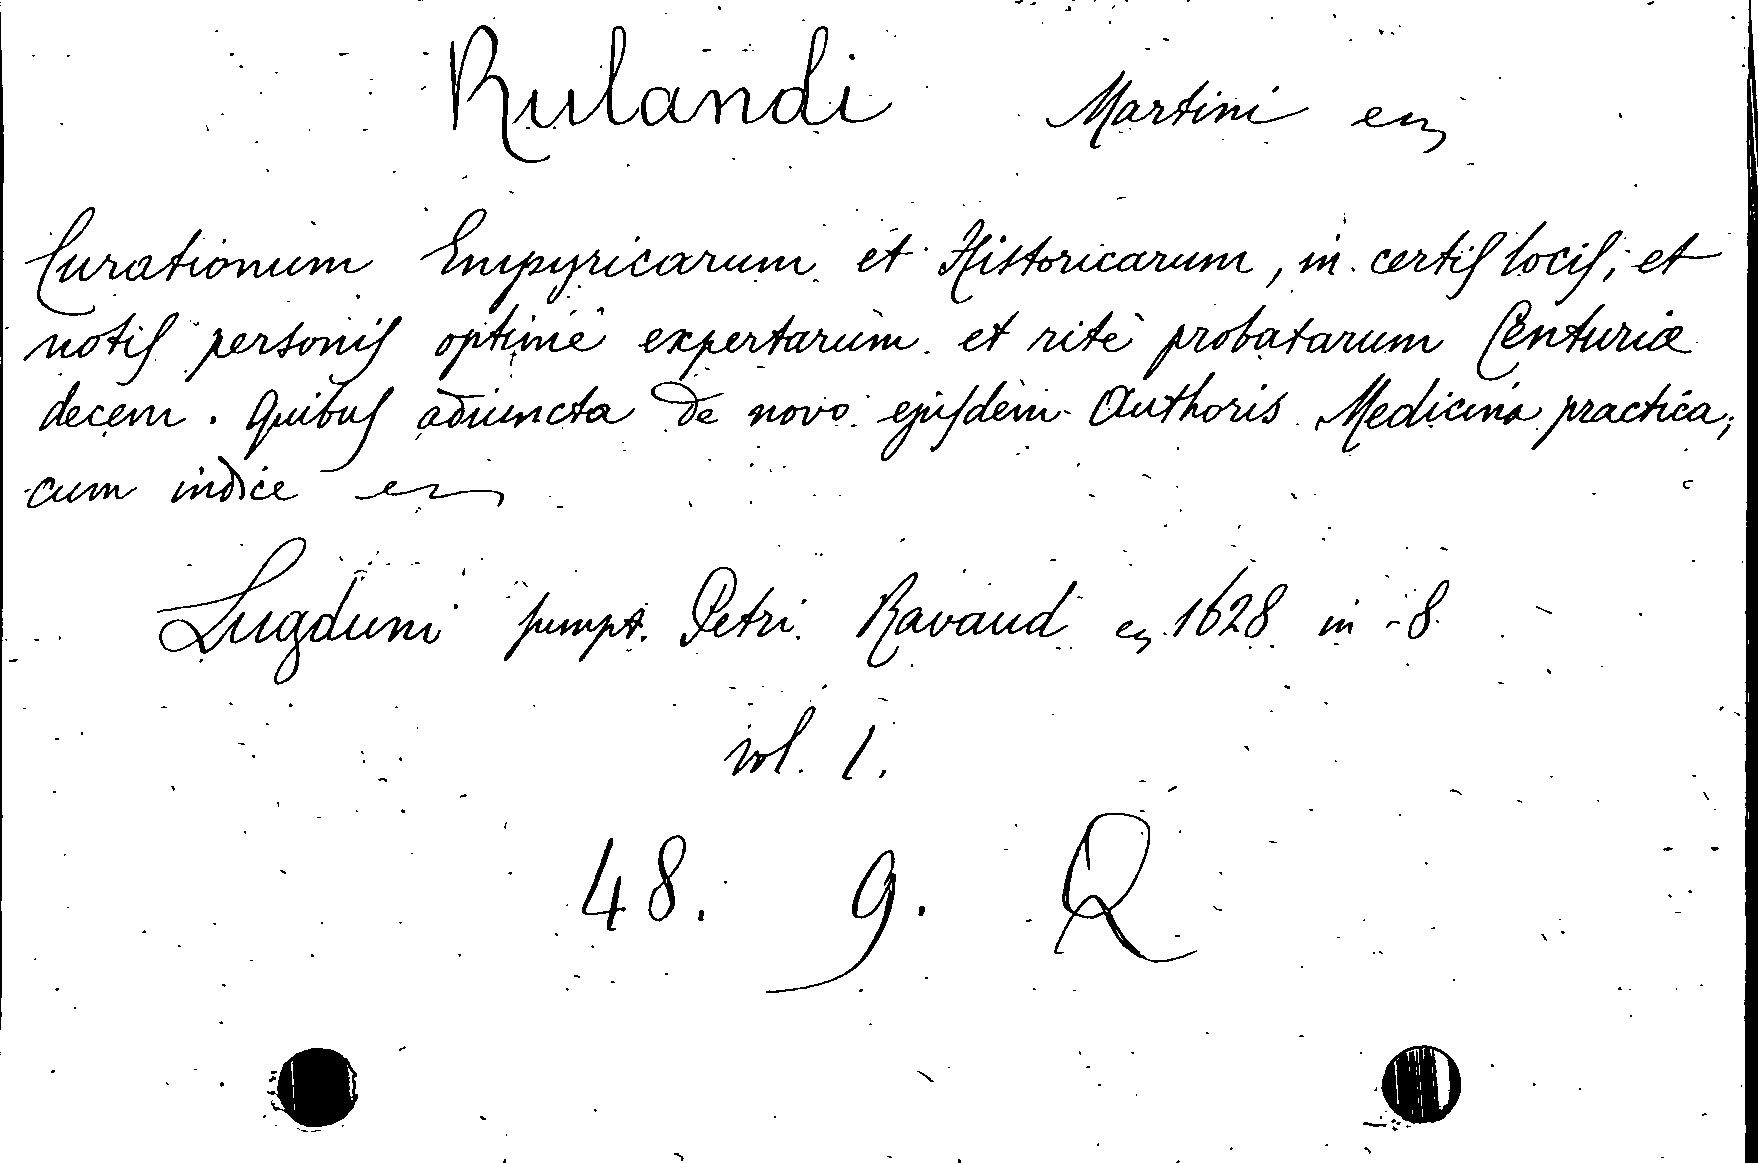 Rulandi Martini etc
Curationum Empyricarum et Historicarum, in certis locis, et
notis personis optimè expertarum et ritè probatarum Centuriæ
decem. Quibus adiuncta de novo ejusdem Authoris Medicina practica,
cum indice etc
Lugduni sumpt. Petri Ravaud etc 1628 in-8
vol. 1.
48. 9. Q